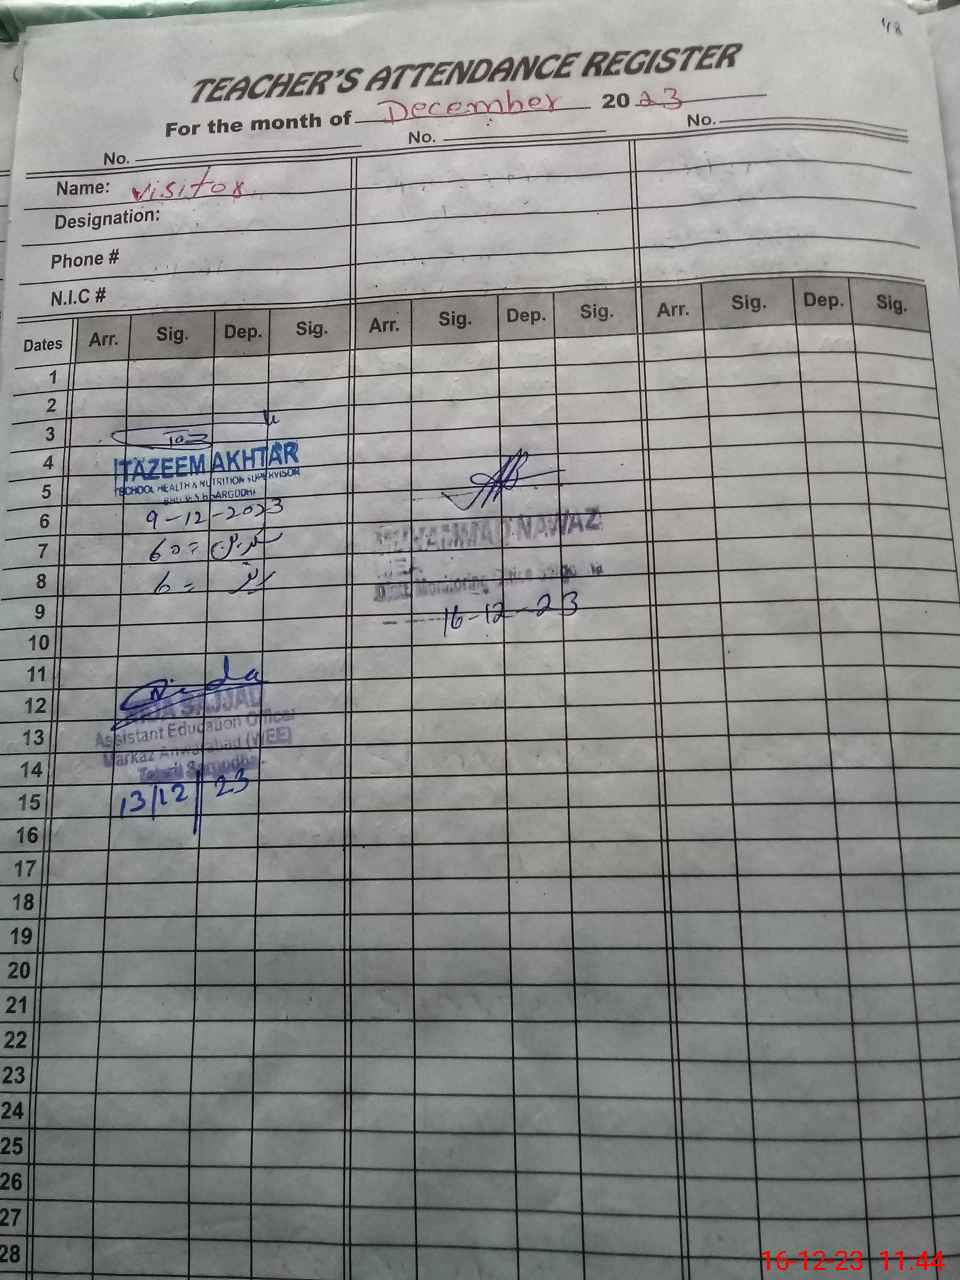 48
TEACHER'S ATTENDANCE REGISTER
For the month of December 2023
No. No. No.
Name: visitor
Designation:
Phone #
N.I.C #
Dates Arr. Sig. Dep. Sig. Arr. Sig. Dep. Sig. Arr. Sig. Dep. Sig.
1
2
3
4
TAZEEM AKHTAR
5
SCHOOL HEALTH & NUTRITION SUPERVISOR
SARGODHA
6
9-12-2023
7
60 =
MUHAMMAD NAWAZ
8
6 =
Monitoring
9
16-12-23
10
11
Nida
12
SAJJAD
13
Assistant Education Officer
Markaz Anwarabad (WEE)
14
Tehsil Sargodha
15
13/12/23
16
17
18
19
20
21
22
23
24
25
26
27
28
16-12-23 11:44